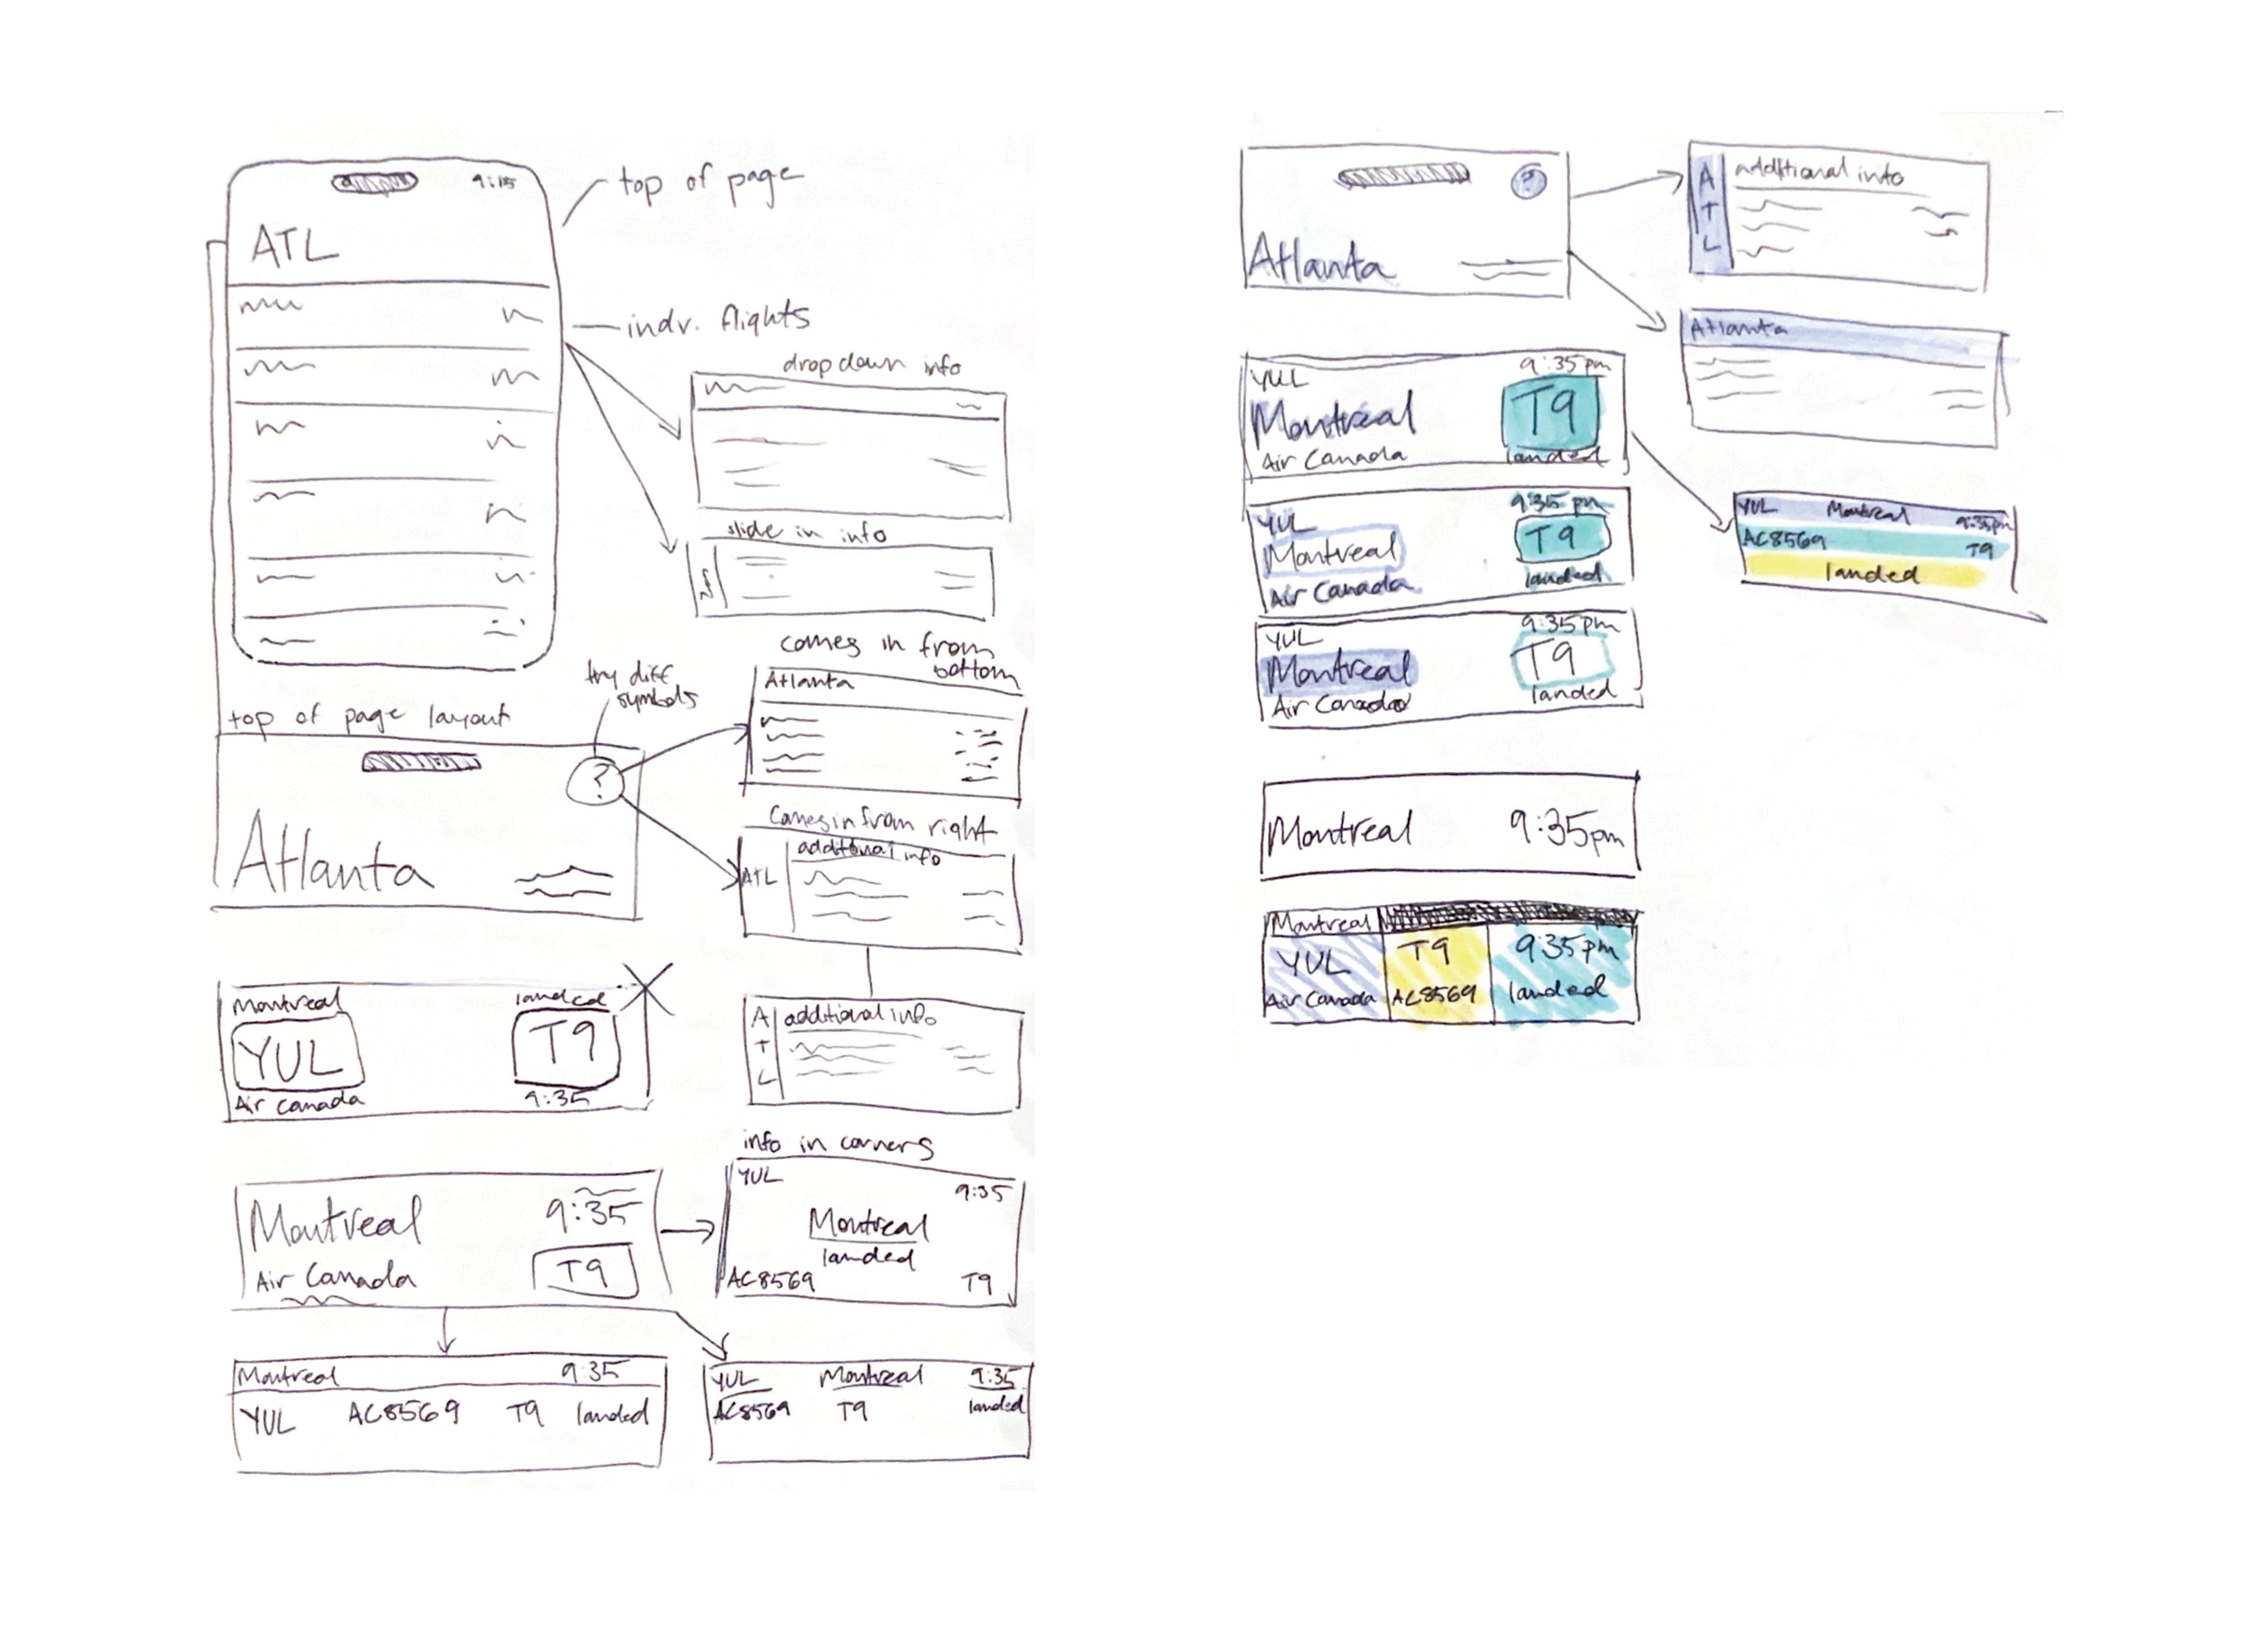 9:15
top of page
ATL
indv. flights
dropdown info
slide in info
comes in from
bottom
try diff
symbols
Atlanta
top of page layout
?
Atlanta
comes in from right
additional info
ATL
Montreal
landed
YUL
T9
Air Canada
9:35
A
T
L
additional info
info in corners
Montreal
9:35
Air Canada
T9
YUL
9:35
Montreal
landed
AC8569
T9
Montreal
9:35
YUL AC8569 T9 landed
YUL Montreal 9:35
AC8569 T9 landed
?
Atlanta
A
T
L
additional info
Atlanta
YUL
9:35pm
Montreal
T9
Air Canada
landed
YUL
9:35 pm
Montreal
T9
Air Canada
landed
YUL Montreal 9:35pm
AC8569 T9
landed
YUL
9:35pm
Montreal
T9
Air Canada
landed
Montreal 9:35pm
Montreal
YUL T9 9:35pm
Air Canada AC8569 landed